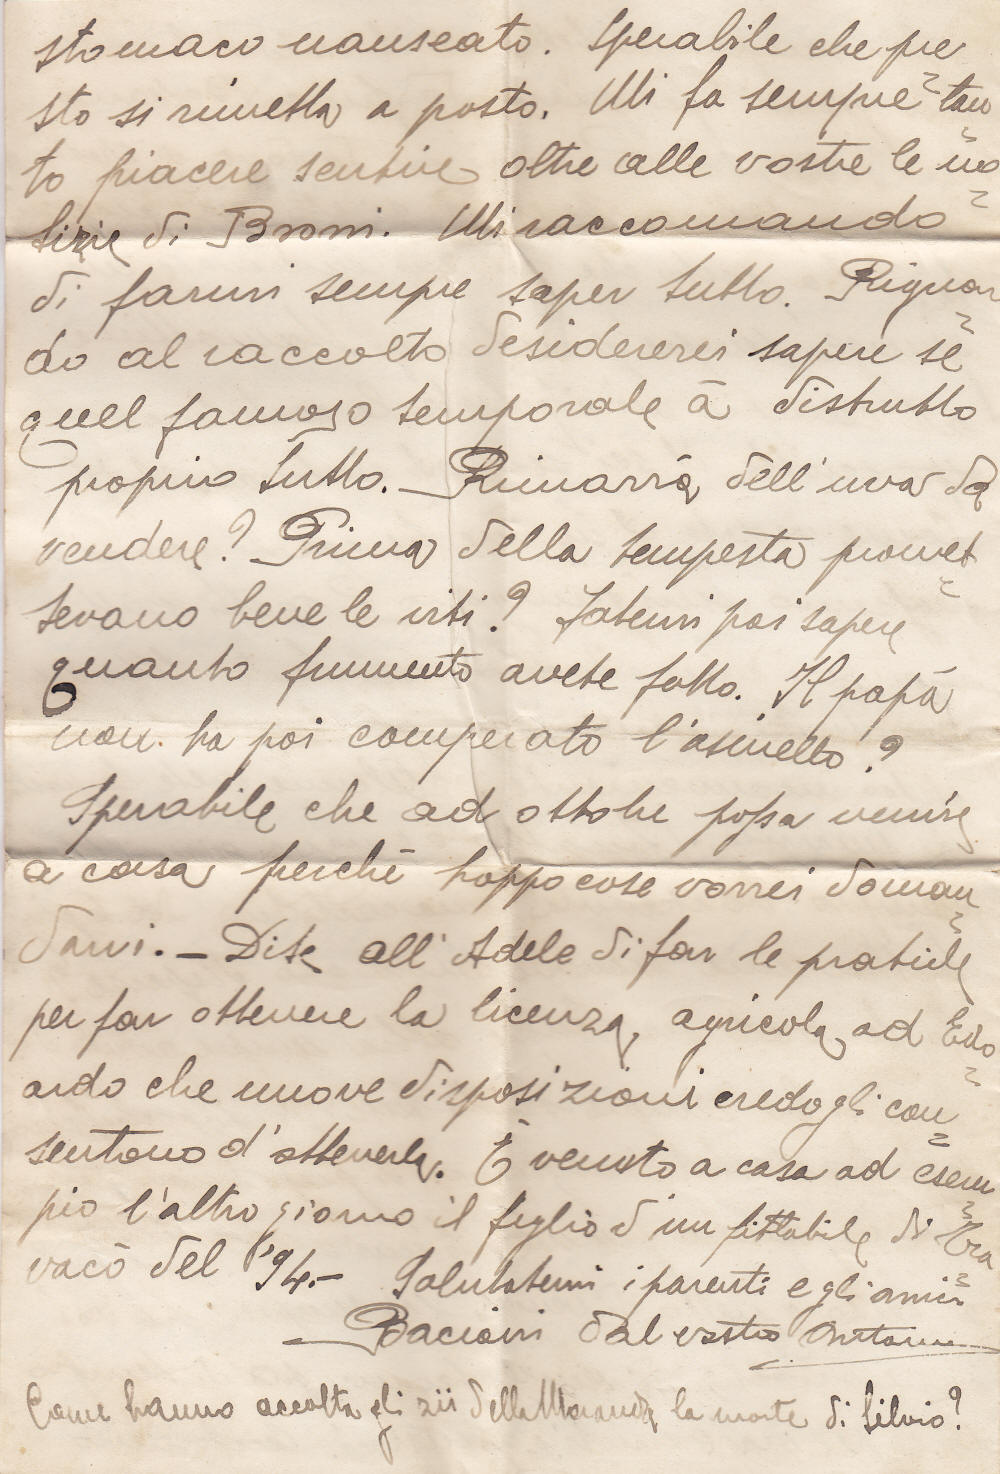 stomaco nauseato. Sperabile che pre
sto si rimetta a posto. Mi fa sempre tan=
to piacere sentire oltre alle vostre le no=
tizie di Broni. Mi raccomando
di farmi sempre saper tutto. Riguar=
do al raccolto desidererei sapere se
quel famoso temporale à distrutto
proprio tutto. - Rimarrà dell'uva da
vendere? Prima della tempesta promet=
tevano bene le viti? Fatemi poi sapere
quanto frumento avete fatto. Il papà
non ha poi comperato l'asinello?
Sperabile che ad ottobre possa venire
a casa perchè troppo cose vorrei doman=
darvi. - Dite all'Adele di far le pratiche
per far ottenere la licenza agricola ad Edo=
ardo che nuove disposizioni credo gli con=
sentano d'ottenerla. È venuto a casa ad esem=
pio l'altro giorno il figlio d'un fittabile di Tra=
vacò del '94. - Salutatemi i parenti e gli amici
Bacioni dal vostro Antonio
Come hanno accolta gli zii della Moranda la morte di Silvio?